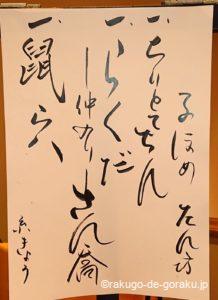 子ほめ
一、ちりとてちん
一、らくだ
―仲入り― さん喬
一、鼠穴
©rakugo-de-goraku.jp